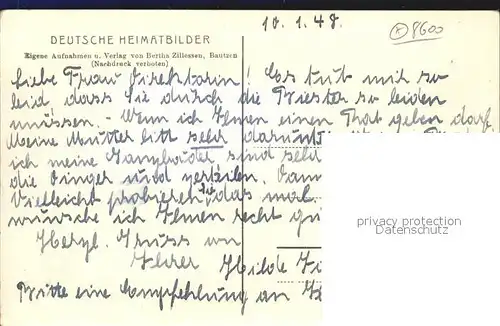 10.1.48.
(K) 8600
DEUTSCHE HEIMATBILDER
Eigene Aufnahmen u. Verlag von Bertha Zillessen, Bautzen
(Nachdruck verboten)
Liebe Frau Direktorin! Es tut mir so
leid, dass Sie durch die so leiden
müssen. - Wenn ich Ihnen einen Rat geben darf
Meine Mutter litt sehr darunter
ich meine sind sehr
die Dinger und zerteilen. Dann
Vielleicht probieren Sie das mal.
wünsche ich Ihnen recht gu
Herzl. Gruss von
Ihrer Hilde
Bitte eine Empfehlung an
privacy protection
Datenschutz